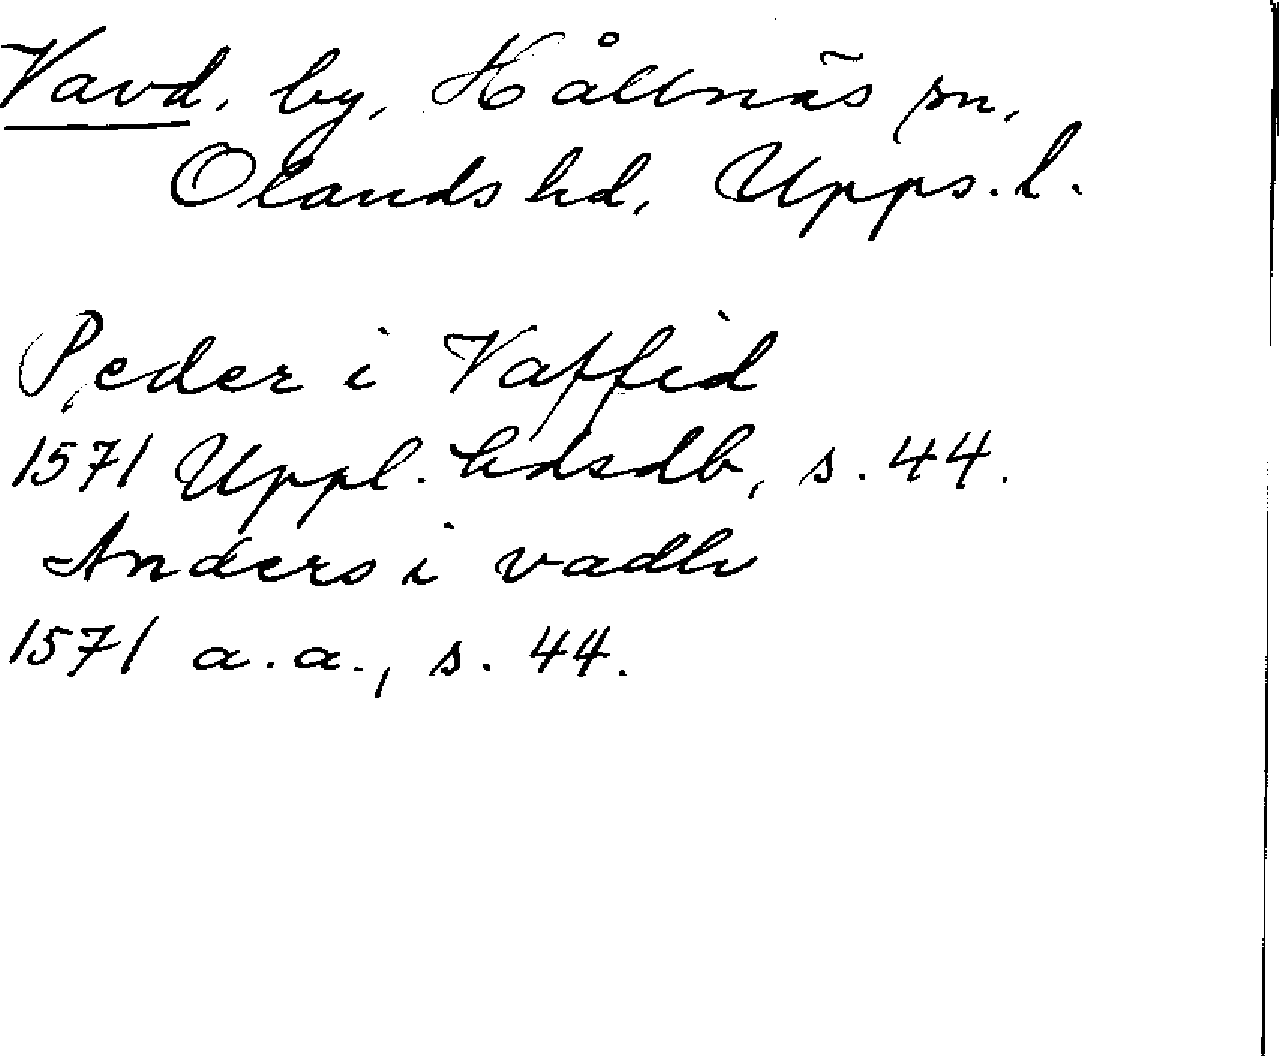 Vavd. by. Hållnäs sn.
Olands hd. Upps. l.
Peder i Vaffid
1571 Uppl. hdsdb, s. 44.
Anders i vadh
1571 a.a., s. 44.